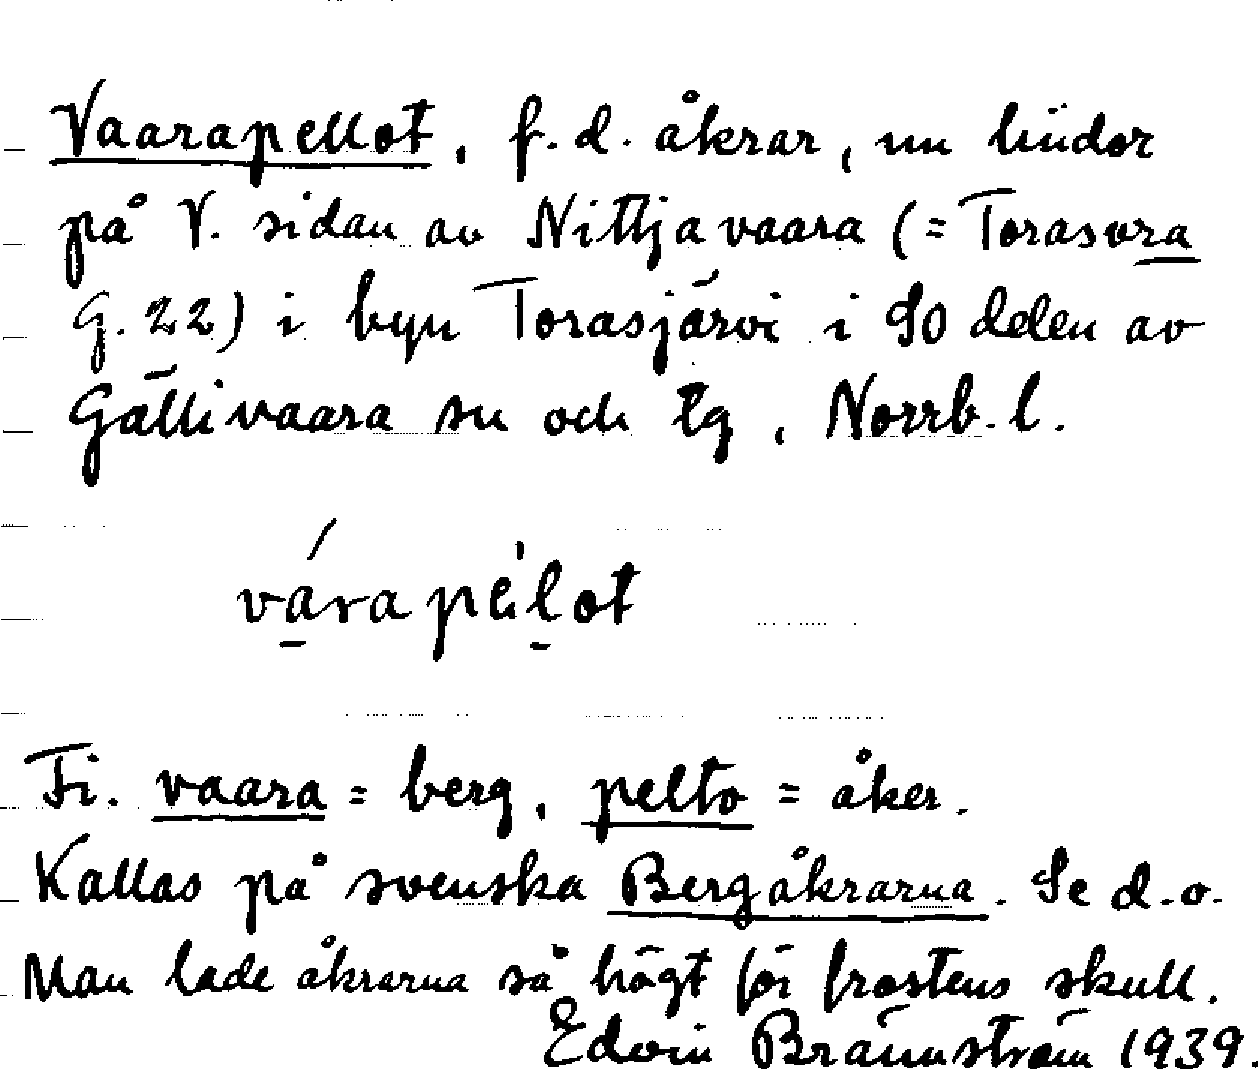 Vaarapellot, f.d. åkrar, nu lindor
på V. sidan av Nittjavaara (= Torasvra
G. 22) i byn Torasjärvi i SO delen av
Gällivaara sn och tg, Norrb. l.
várapèlot
Fi. vaara = berg, pelto = åker.
Kallas på svenska Bergåkrarna. Se d.o.
Man lade åkrarna så högt för frostens skull.
Edvin Brännström 1939.